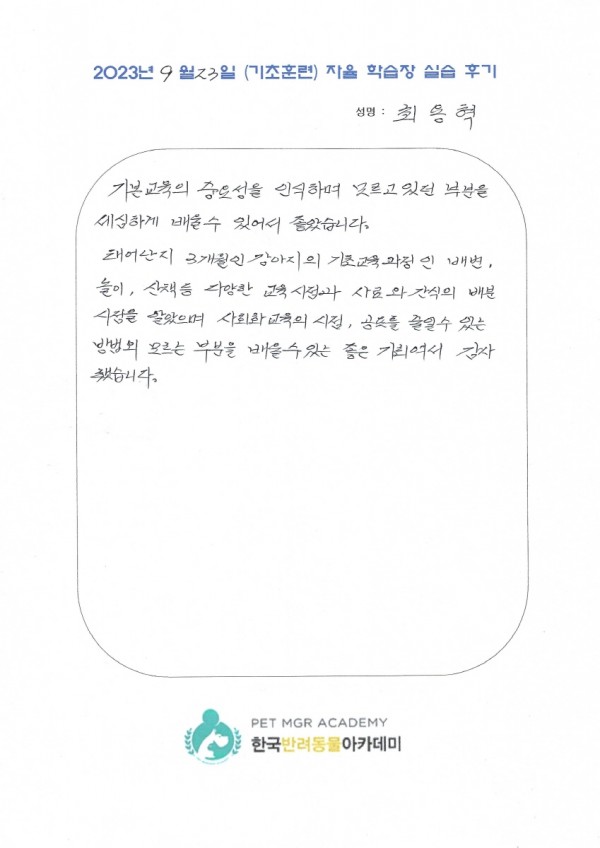 2023년 9월23일 (기초훈련) 자율 학습장 실습 후기
성명 : 최용혁
기본교육의 중요성을 인식하며 모르고 있던 부분을
세심하게 배울수 있어서 좋았습니다.
태어난지 3개월인 강아지의 기초교육과정인 배변,
놀이, 산책등 다양한 교육시점과 사료와 간식의 배분
시점을 알았으며 사회화교육의 시점, 공포를 줄일수 있는
방법외 모르는 부분을 배울수있는 좋은 기회여서 감사
했습니다.
PET MGR ACADEMY
한국반려동물아카데미